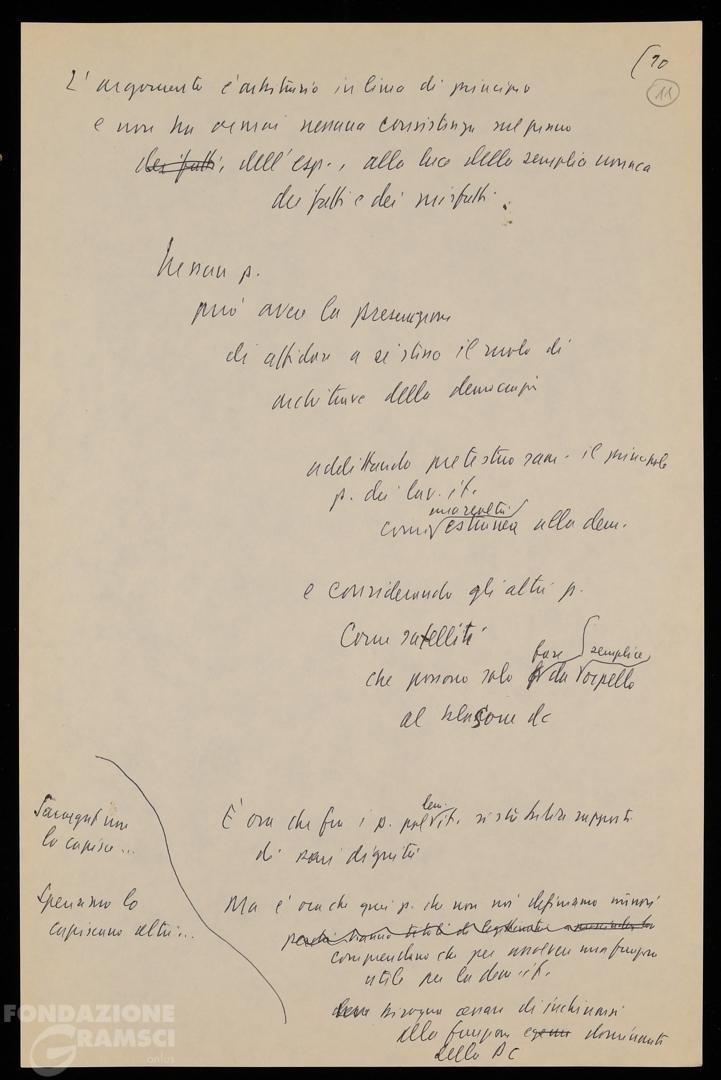 10
11
L'argomento è arbitrario in linea di principio
e non ha ormai nessuna consistenza sul piano
dei fatti, dell'esp., alla luce della semplice cronaca
dei fatti e dei misfatti.
Nessun p.
può avere la presunzione
di affidare a se stesso il ruolo di
architrave della democrazia
additando pretestuosam. il principale
p. dei lav. it.
come estranea alla dem.
e considerando gli altri p.
come satelliti
che possono solo fare da semplice orpello
al blasone dc
È ora che fra i p. pol. dem. it. si stabilisca rapporti
di pari dignità
Ma è ora che quei p. che non noi definiamo minori
comprendano che per assolvere una funzione
utile per la dem. it.
bisogna cessare di inchinarsi
alla funzione dominante
della DC
lo capisce...
Speriamo lo
capiscano altri...
FONDAZIONE
GRAMSCI
onlus